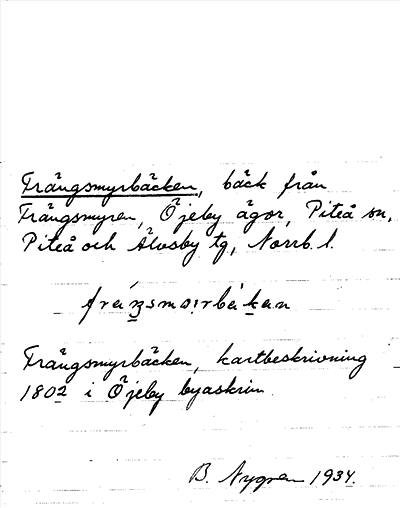 Trängsmyrbäcken, bäck från
Trängsmyren, Öjeby ägor, Piteå sn,
Piteå och Älvsby tg, Norrb. l.
Trängsmyrbäcken, kartbeskrivning
1802 i Öjeby byaskrin
B. Nygren 1934.